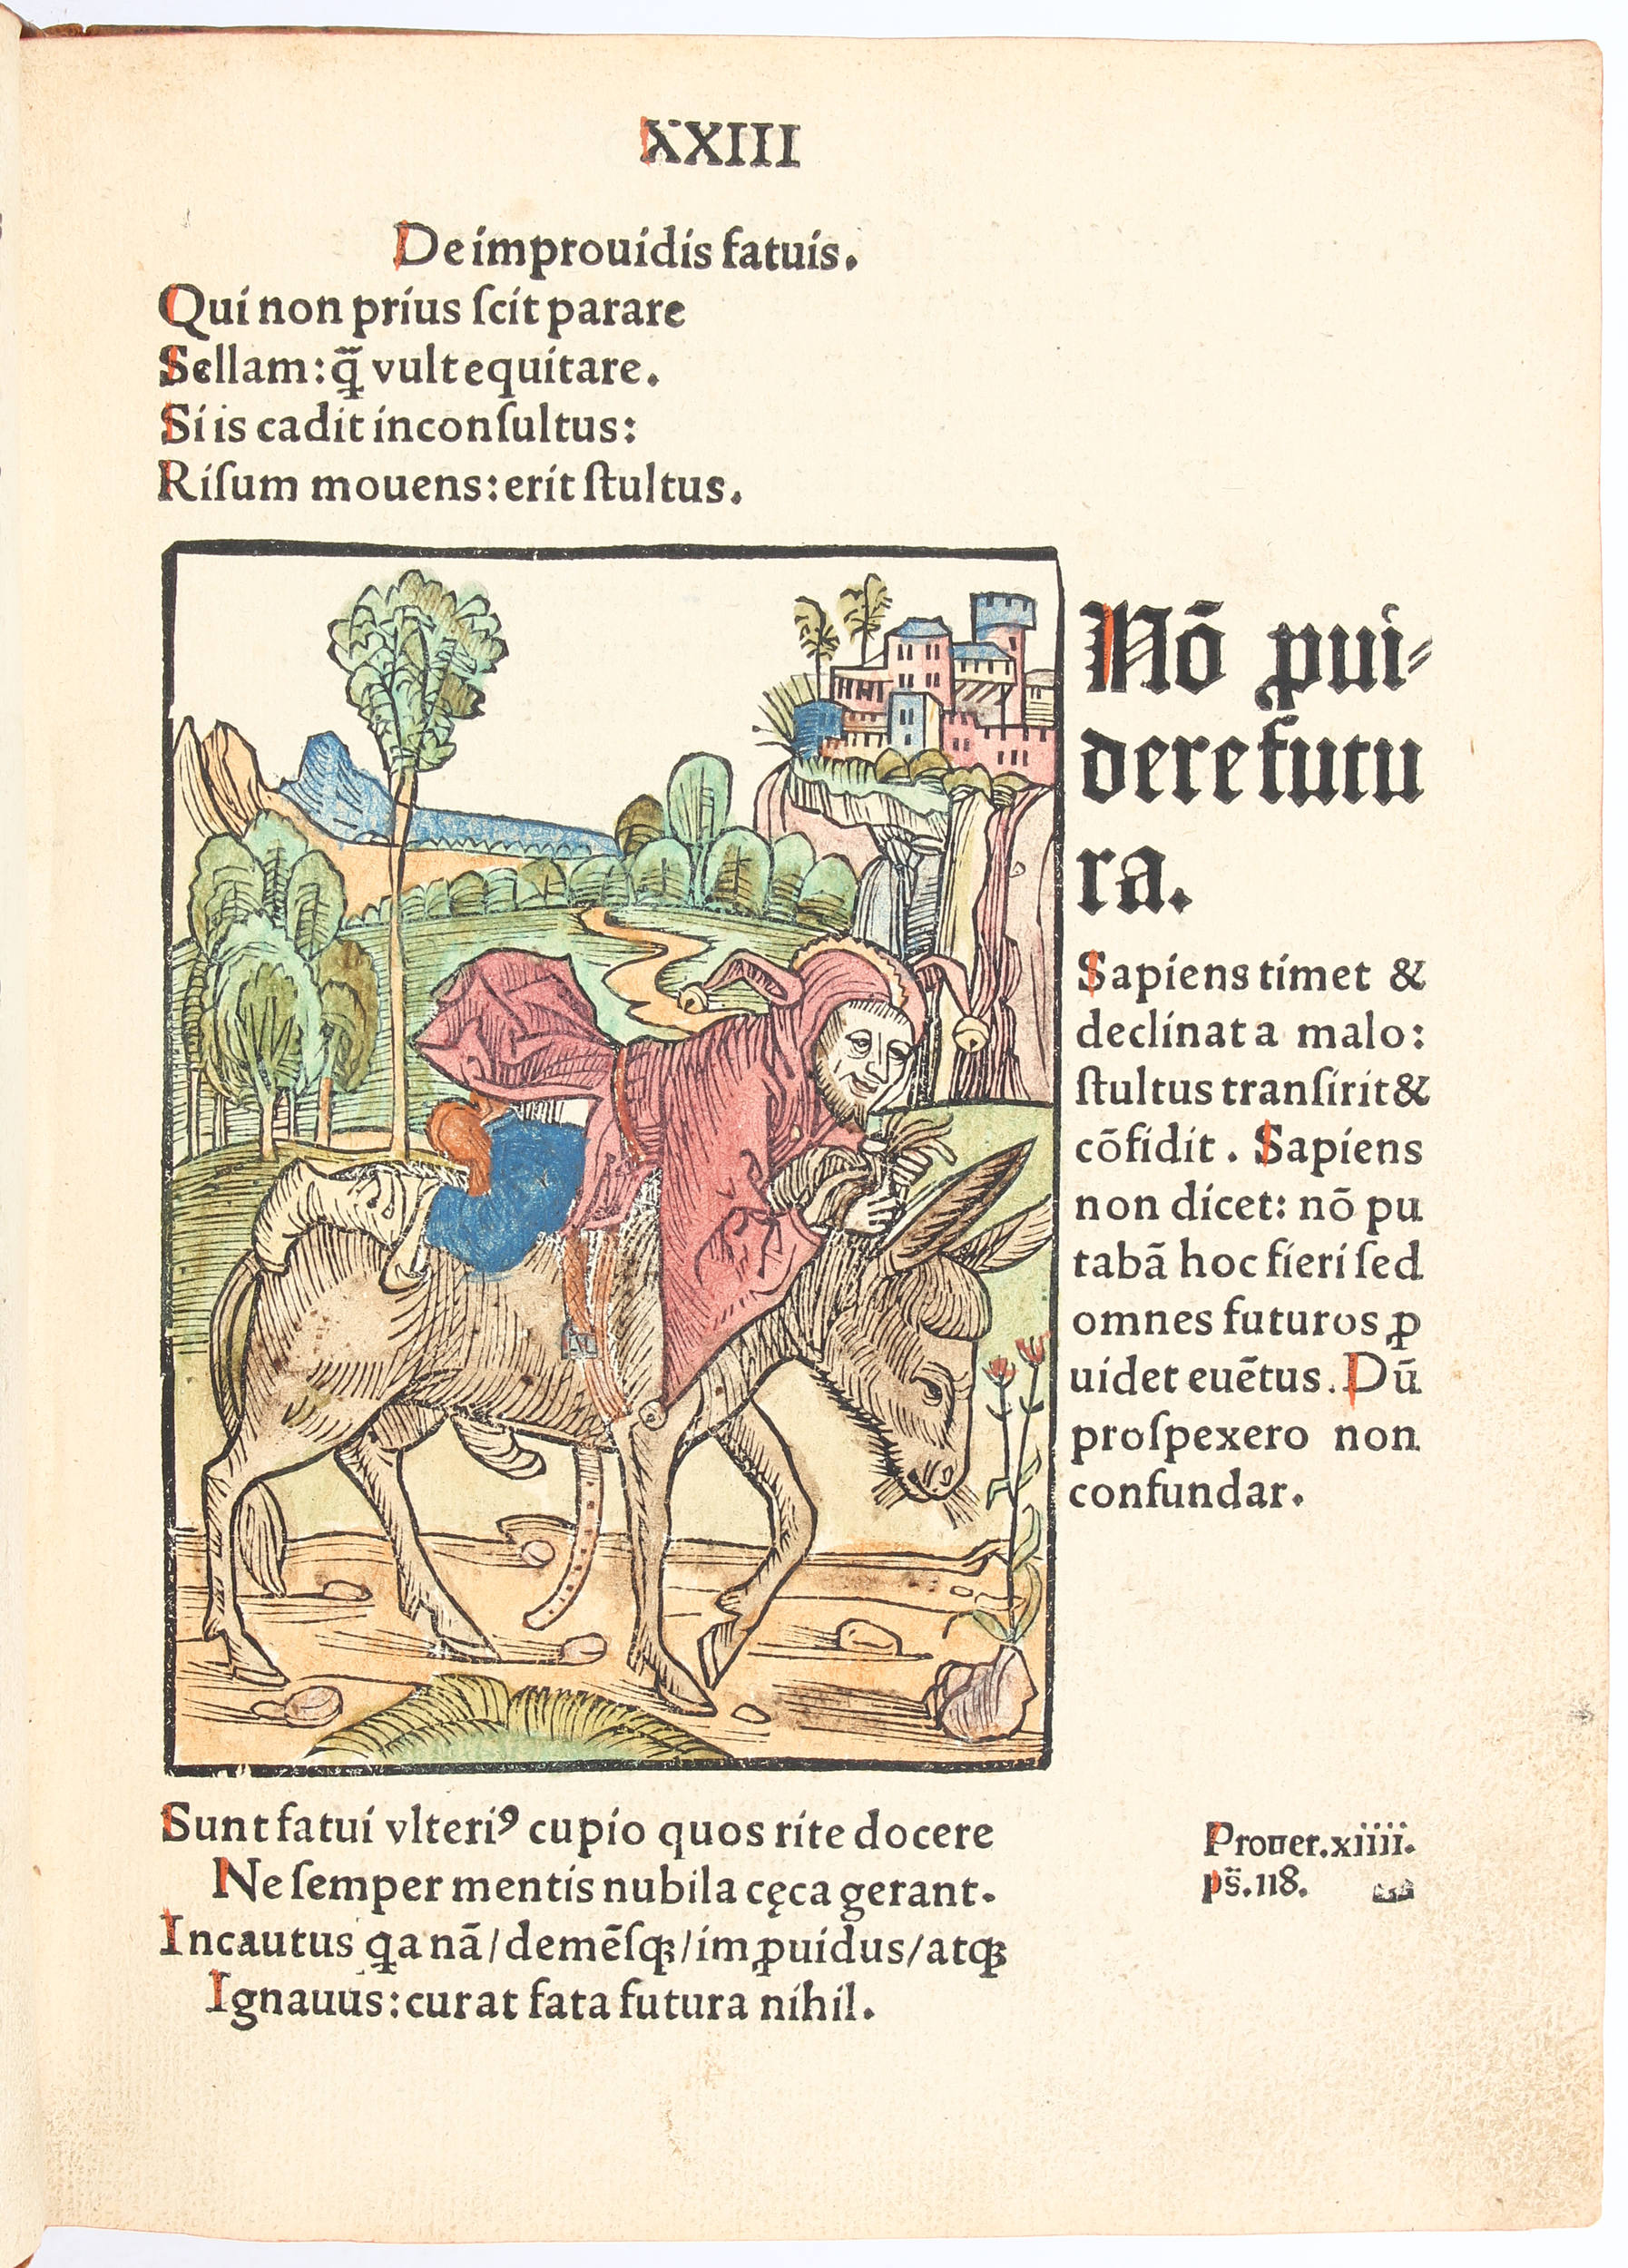 XXIII
De improuidis fatuis.
Qui non prius ſcit parare
Sellam: q̃ vult equitare.
Si is cadit inconſultus:
Riſum mouens: erit ſtultus.
Nō ꝓui⸗
dere futu
ra.
Sapiens timet &
declinat a malo:
ſtultus tranſirit &
cōfidit . Sapiens
non dicet: nō pu
tabā hoc fieri ſed
omnes futuros ꝓ
uidet euētus. Dū
proſpexero non
confundar.
Sunt fatui vlteriꝰ cupio quos rite docere
Ne ſemper mentis nubila cęca gerant.
Incautus q̇a nā/demēſqꝫ/imꝓuidus/atqꝫ
Ignauus: curat fata futura nihil.
Prouer.xiiii.
ps̃.118.